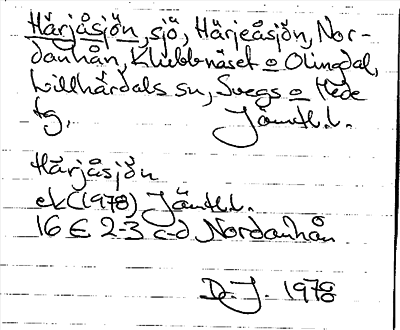 Härjåsjön, sjö, Härjeåsjön, Nor-
danhån, Klubbnäset o Olingdal,
Lillhärdals sn, Svegs o Hede
tg. Jämtl.l.
Härjåsjön
ek (1978) Jämtl.l.
16 E 2-3 c-d Nordanhån
D.J. 1978